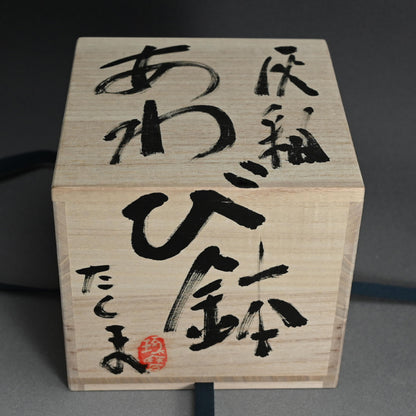 灰釉
あわび鉢
たくま